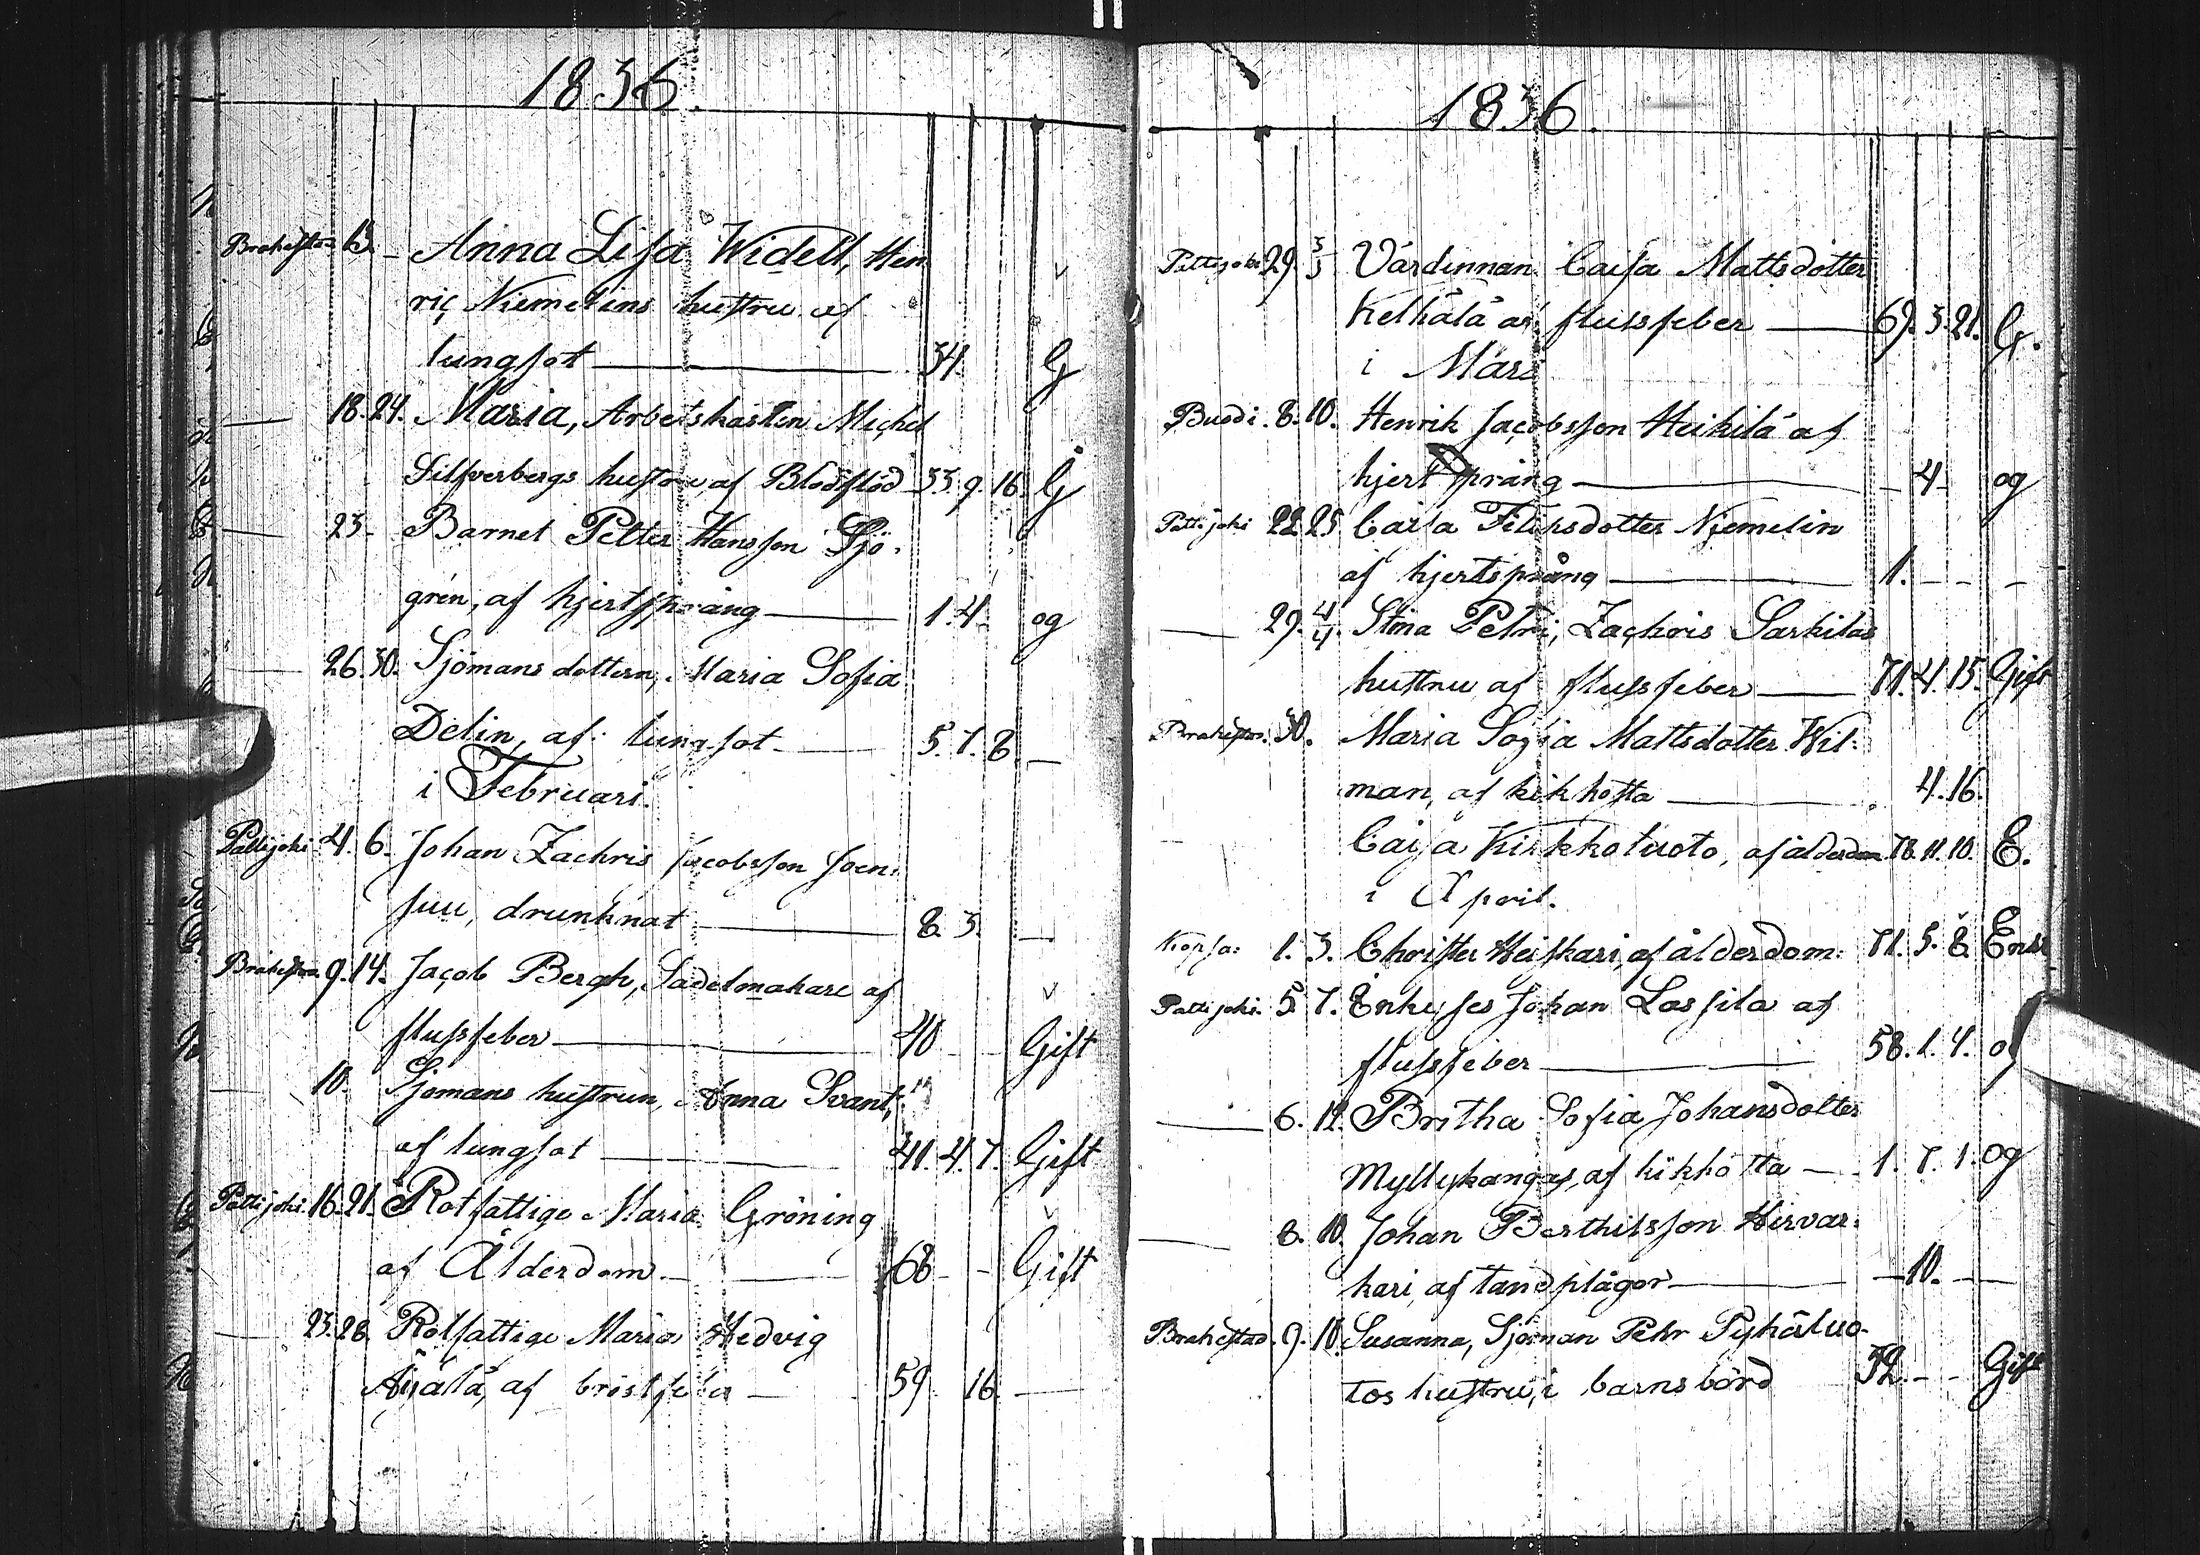 1836.
Brahestad 13. – Anna Lisa Widell, Hen
ric Niemelins hustru af
lungsot — 34. G
— 18. 24. Maria, Arbetskarlen Michel
Silfverbergs hustru, af Blodflöd 33. 9. 16. G
— 23. – Barnet Petter Hansson Sjö-
grén, af hjertsprång — 1. 4. og
— 26. 30. Sjömans dottern, Maria Sofia
Delin, af lungsot — 5. 7. 8. —
i Februari.
Pattijoki 4. 6. Johan Zachris Jacobsson Joen-
suu, drunknat — 8. 3. —
Brahestad 9. 14. Jacob Bergh, Sadelmakare af
flussfeber — 40 – – Gift
— 10. Sjömans hustrun, Anna Svant,
af lungsot — 41. 4. 7. Gift
Pattijoki 16. 21. Rotfattige Maria Gröning
af Ålderdom — 68 – – Gift
— 23. 28. Rotfattige Maria Hedvig
af bröstfeber — 59 16. —
1836.
Pattijoki 29. 3/3 Värdinnan Caisa Mattsdotter
Kelhälä af flussfeber — 69. 3. 21. G.
i Mars
Buodi. 8. 10. Henrik Jacobsson Heikilä af
hjertsprång — – 4 – og
Pattijoki 22 25 Caisa Feliksdotter Niemelin
af hjertsprång — 1. – – –
— 29. 4/4. Stina Petri, Zachris Sarkilas
hustru af flussfeber — 71. 4. 15. Gift
Brahestad. 30. Maria Sofia Mattsdotter Wil-
man, af kikhosta — 4. 16.
Caisa Kirkholuoto, af ålderdom 78. 11. 10. E.
i April.
Kopsa: 1. 3. Christer Heiskari, af ålderdom. 71. 5. 8. Enkl
Pattijoki. 5. 7. Johan Lassila af
flussfeber — 58. 1. 4. og
— 6. 12. Britha Sofia Johansdotter
Myllykangas, af kikhosta — 1. 7. 1. og
— 8. 10. Johan Berthilsson Hirvas-
kari, af tandplågor — – 10. —
Brahestad. 9. 10. Susanna, Sjöman Pehr Pyhäluo-
tos hustru, i barnsbörd 32. – – Gift